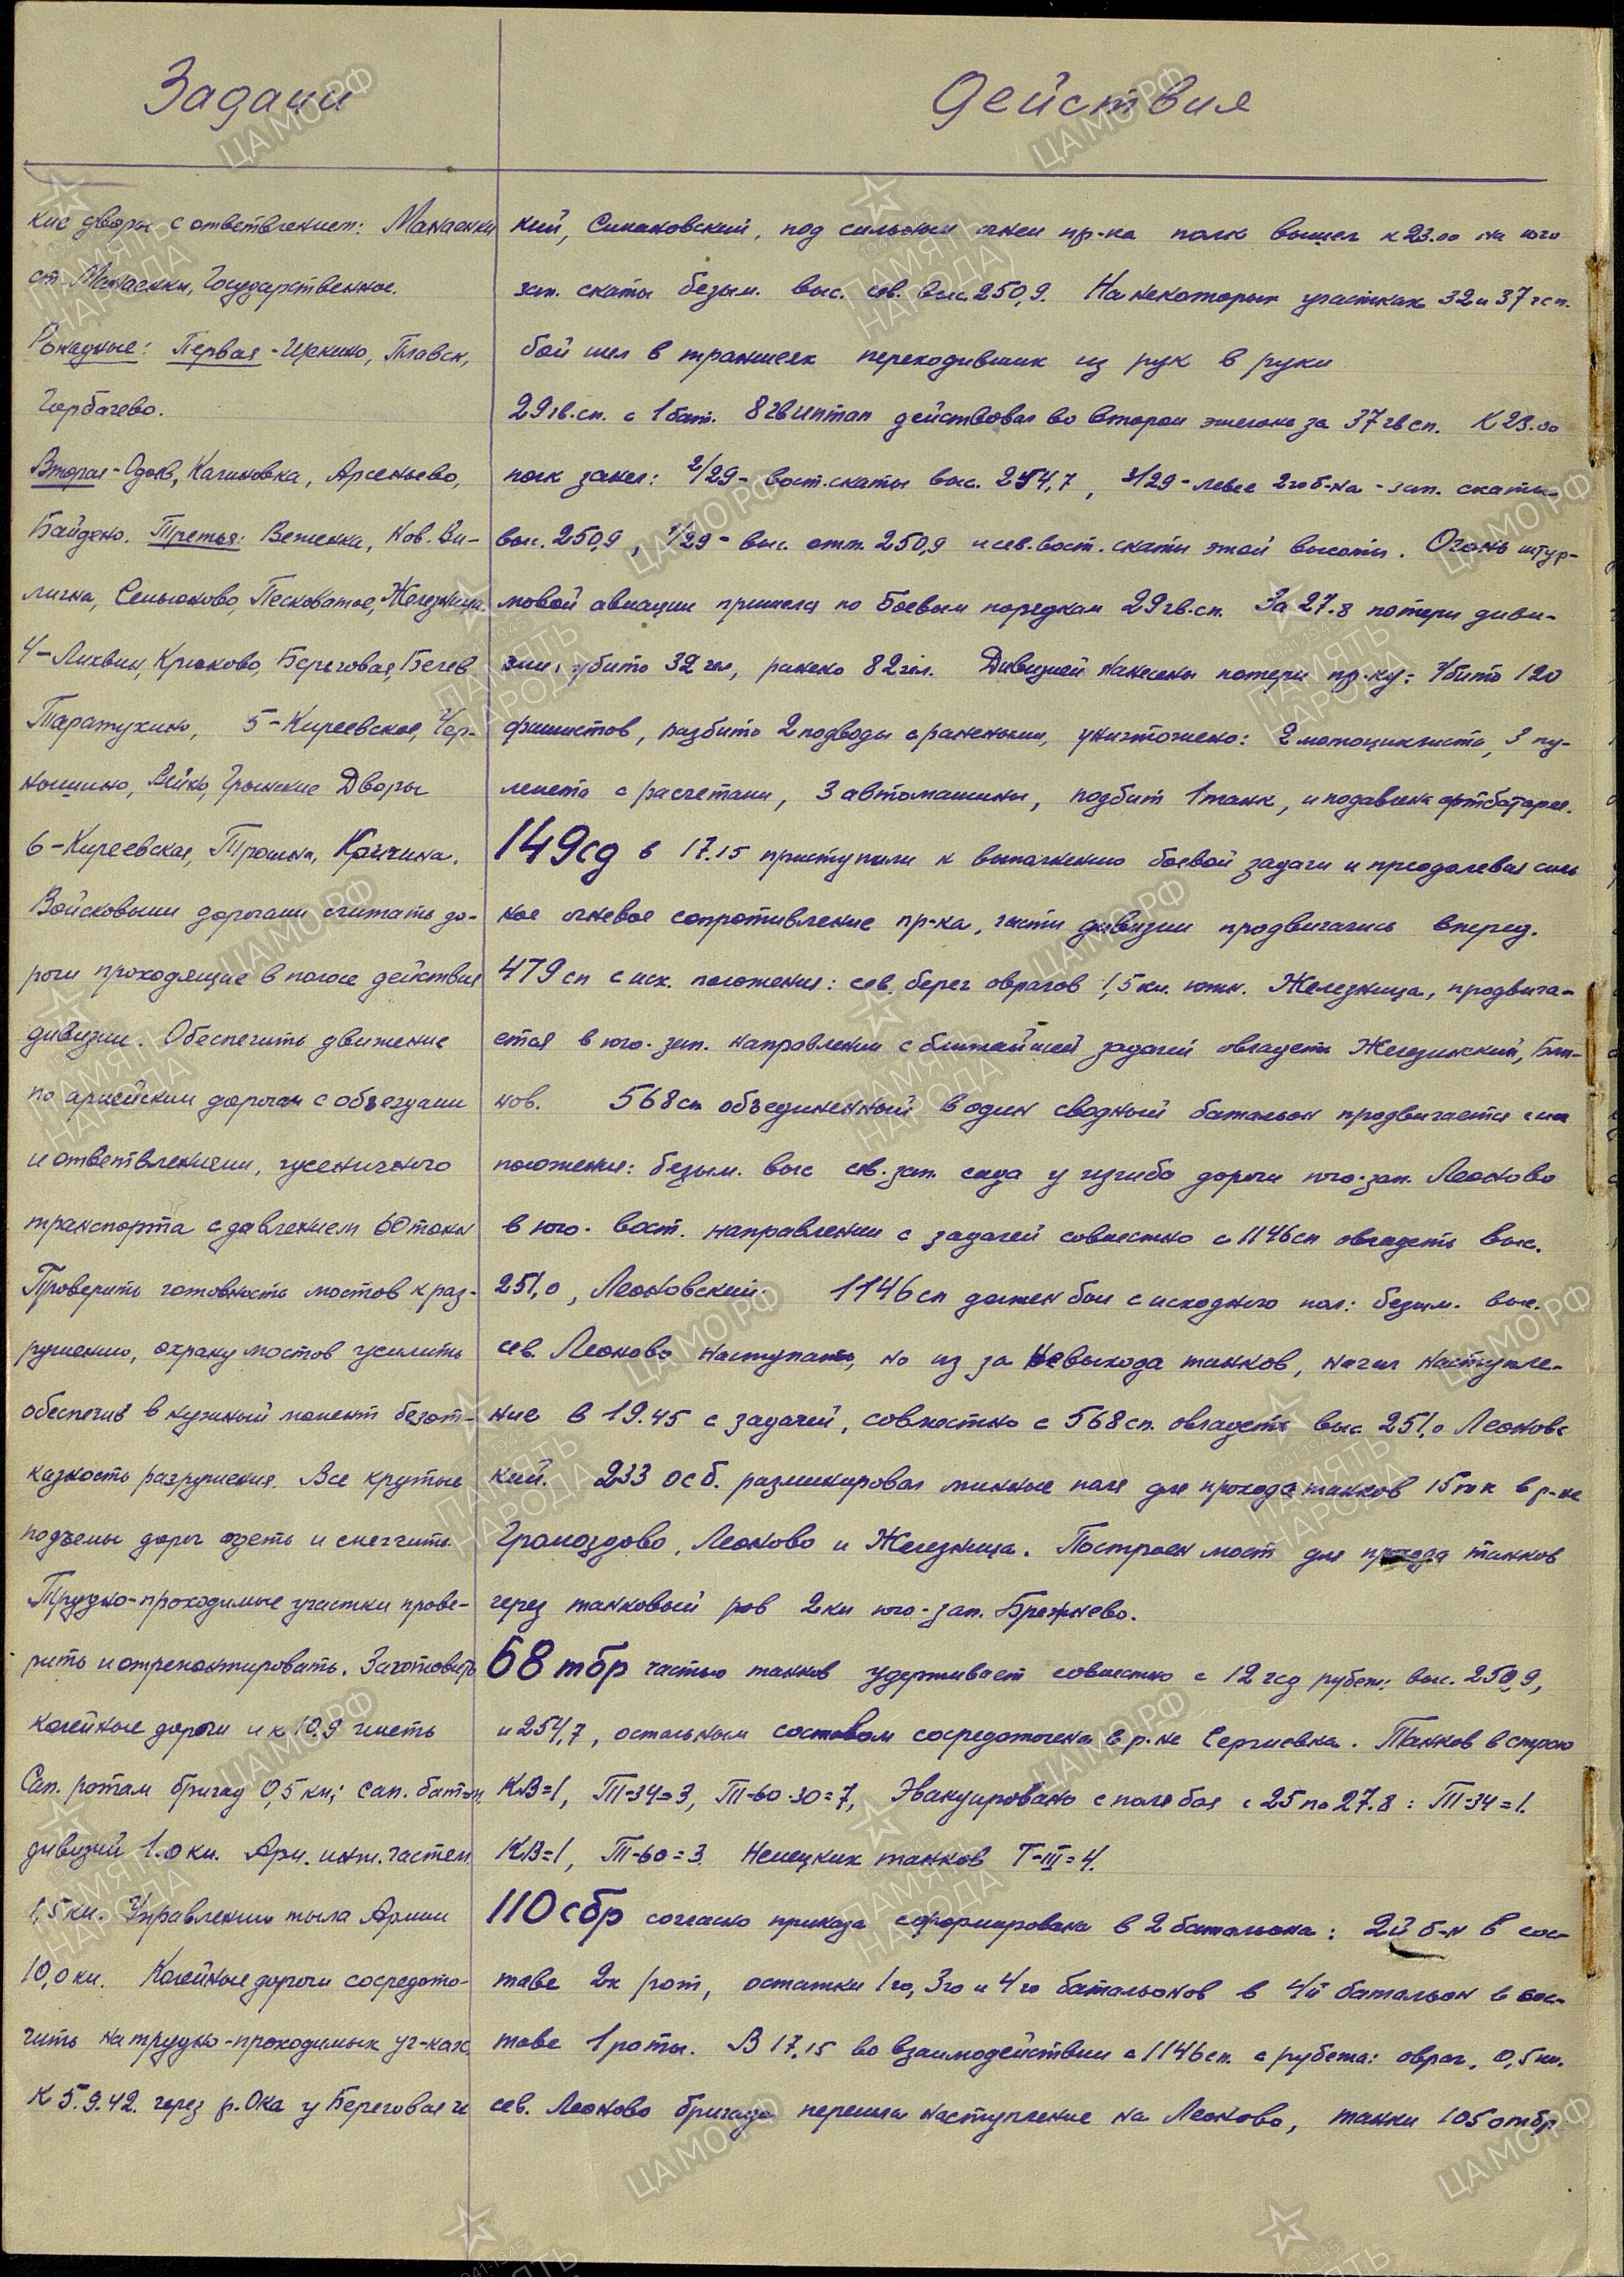 Задачи
кие дворы с ответвлением: Манаенки
ст. Манаенки, Государственное.
Рокадные: Первая - Иркино, Плавск,
Горбачево.
Вторая - Одоев, Калиновка, Арсеньево,
Байдено. Третья: Веженка, Нов. Ви-
лична, Сеньюково, Песковатое, Железница.
4 - Лихвин, Крюково, Береговая, Белев
Таратухино, 5 - Киреевское, Чер-
ношино, Вейно, Грынские Дворы
6 - Киреевская, Трошна,
Войсковыми дорогами считать до-
роги проходящие в полосе действия
дивизии. Обеспечить движение
по армейским дорогам с объездами
и ответвлениями, гусеничного
транспорта с давлением 60 тонн
Проверить готовность мостов к раз-
рушению, охрану мостов усилить
обеспечив в нужный момент безот-
казность разрушения. Все крутые
подъемы дорог одеть и смягчить.
Трудно-проходимые участки прове-
рить и отремонтировать. Заготовить
колейные дороги и к 10.9 иметь
Сап. ротам бригад 0,5 км; сап. бат-м
дивизий 1.0 км. Арм. инж. частям
1,5 км. Управлению тыла Армии
10,0 км. Колейные дороги сосредото-
чить на трудно-проходимых уч-ках
К 5.9.42. через р. Ока у Береговая и
Действия
кий, Синановский, под сильным огнем пр-ка полк вышел к 23.00 на юго
зап. скаты безым. выс. сев. выс. 250,9. На некоторых участках 32 и 37 гсп.
бой шел в траншеях переходивших из рук в руки
29 гв.сп. с 1 бат. 8 гвиптап действовал во втором эшелоне за 37 гв сп. К 23.00
полк занял: 2/29 - вост. скаты выс. 254,7, 3/29 - левее 2го б-на - зап. скаты
выс. 250,9, 1/29 - выс. отм. 250,9 и сев. вост. скаты этой высоты. Огонь штур-
мовой авиации пришелся по боевым порядкам 29 гв.сп. За 27.8 потери диви-
зии: убито 32 чел, ранено 82 чел. Дивизией нанесены потери пр-ку: Убито 120
фашистов, разбито 2 подводы с ранеными, уничтожено: 2 мотоциклиста, 3 пу-
лемета с расчетами, 3 автомашины, подбит 1 танк, и подавлена артбатарея.
149 сд в 17.15 приступили к выполнению боевой задачи и преодолевая силь
ное огневое сопротивление пр-ка, части дивизии продвигались вперед.
479 сп с исх. положения: сев. берег оврагов 1,5 км. южн. Железница, продвига-
ется в юго-зап. направлении с ближайшей задачей овладеть Железинский,
нов. 568 сп объединенный в один сводный батальон продвигается с исх
положения: безым. выс сев.-зап. сада у изгиба дороги юго-зап. Леоново
в юго-вост. направлении с задачей совместно с 1146 сп овладеть выс.
251,0, Леоновский. 1146 сп должен был с исходного пол: безым. выс.
сев. Леоново наступать, но из за невыхода танков, начал наступле-
ние в 19.45 с задачей, совместно с 568 сп. овладеть выс 251,0 Леоновс
кий. 233 осб. разминировал минные поля для прохода танков 15 тк в р-не
Громоздово, Леоново и Железница. Построен мост для прохода танков
через танковый ров 2 км юго-зап. Брежнево.
68 тбр частью танков удерживает совместно с 12 гсд рубеж: выс. 250,9,
и 254,7, остальным составом сосредоточена в р-не Сергиевка. Танков в строю
КВ=1, Т-34=3, Т-60-30=7, Эвакуировано с поля боя с 25 по 27.8: Т-34=1.
КВ=1, Т-60=3. Немецких танков Т-III=4.
110 сбр согласно приказа сформирована в 2 батальона: 2й б-н в сос-
таве 2х рот, остатки 1го, 3го и 4го батальонов в 4й батальон в сос-
таве 1 роты. В 17.15 во взаимодействии с 1146 сп. с рубежа: овраг, 0,5 км.
сев. Леоново бригада перешла наступление на Леоново, танки 105 отбр